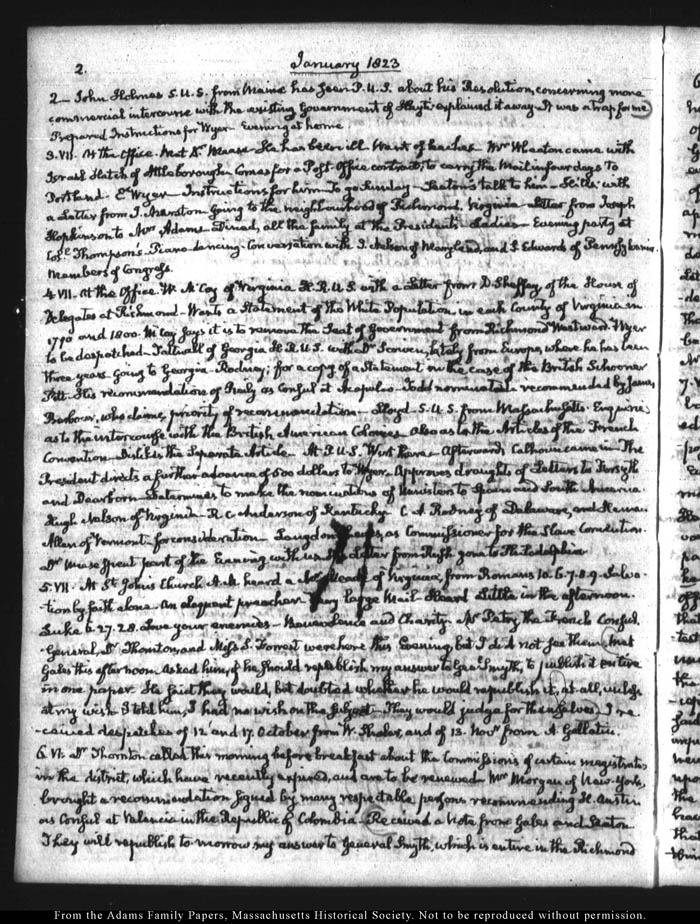 2.
January 1823
2 — John Holmes S.U.S. from Maine has seen P.U.S. about his Resolution, concerning more
commercial intercourse with the existing Government of Hayti explained it away — It was a trap for me
Prepared Instructions for Wyer — Evening at home
3. VII. At the Office. Met Dr Mease — He has been ill. Want of teacher. Mr Wheaton came with
Israel Hatch of Attleborough. Comes for a Post-Office contract, to carry the Mail in four days to
Portland. Ed Wyer — Instructions for him — To go Sunday — Seaton's talk to him — Stills with
a Letter from J. Marston going to the neighbourhood of Richmond, Virginia — Letter from Joseph
Hopkinson to Mrs Adams. Dined, all the family at the President's — Ladies — Evening party at
Col. Thompson's. Piano-dancing. Conversation with J. Nelson of Maryland, and S. Edwards of Pennsylvania
Members of Congress.
4 VII. At the Office. W. McCoy of Virginia H.R.U.S. with a Letter from D. Sheffey of the House of
Delegates at Richmond — Wants a Statement of the White Population, in each County of Virginia in
1790 and 1800. McCoy says it is to remove the Seat of Government from Richmond Westward. Wyer
to be despatched — Tattnall of Georgia H.R.U.S. with Dr Screven, lately from Europe, where he has been
three years going to Georgia — Rodney; for a copy of a Statement in the case of the British Schooner
Pitt. His recommendations of as Consul at Acapulco. Todd nominated — recommended by James
Barbour, who claims priority of recommendation — Lloyd — S.U.S. from Massachusetts. Enquires
as to the intercourse with the British American Colonies. Also as to the Articles of the French
Convention. Dislikes the Separate Article. At P.U.S. Wirt there. Afterwards Calhoun came in. The
President directs a further advance of 500 dollars to Wyer. Approves draughts of Letters to Forsyth
and Dearborn. Determines to make the nominations of Ministers to Spain and South America
Hugh Nelson of Virginia — R. C. Anderson of Kentucky — C. A. Rodney of Delaware, and Heman
Allen of Vermont, for consideration. Langdon Cheves, as Commissioner for the Slave Convention.
Dr Mease spent part of the Evening with us. His daughter from Hyde gone to Philadelphia
5. VII. At St. John's Church A.M. heard a Mr of Virginia, from Romans 10. 6.7.8.9. Salva-
tion by faith alone. An eloquent preacher. Very large Mail — Heard Little in the afternoon.
Luke 6.27.28. Love your enemies — Benevolence and Charity. Mr Petry the French Consul.
General, Dr Thornton, and Miss S. Forrest were here this Evening, but I did not see them. Met
Gales this afternoon. Asked him, if he should republish my answer to Genl Smyth, to publish it entire
in one paper. He said they would, but doubted whether he would republish it, at all, unless
at my wish. I told him, I had no wish on the subject. They would judge for themselves. I re-
-ceived despatches of 12. and 17. October from W. Shaler, and of 13. Novr from A. Gallatin.
6. VI. Dr Thornton called this morning before breakfast about the Commissions of certain magistrates
in the district, which have recently expired, and are to be renewed — Mr Morgan of New-York,
brought a recommendation signed by many respectable persons recommending St. Austin
as Consul at Valencia in the Republic of Colombia — Received a Note from Gales and Seaton
They will republish to-morrow my answer to General Smyth, which is entire in the Richmond
From the Adams Family Papers, Massachusetts Historical Society. Not to be reproduced without permission.